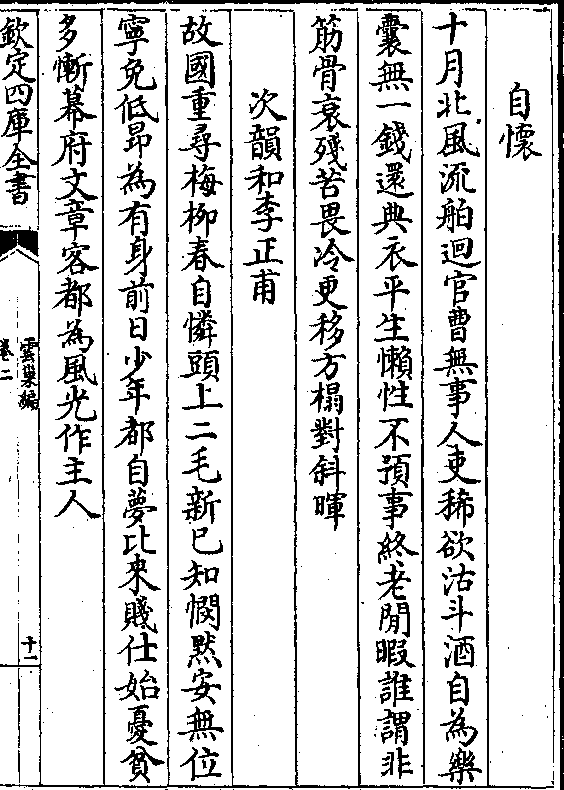 自懐
十月北風流舶迴官曹無事人吏稀欲沽斗酒自為樂
囊無一錢還典衣平生懶性不預事終老閒暇誰謂非
筋骨衰殘苦畏冷更移方榻對斜暉
次韻和李正甫
故國重尋梅柳春自憐頭上二毛新已知憫黙安無位
寧免低昻為有身前日少年都自夢比來賤仕始憂貧
多慚幕府文章客都為風光作主人
欽定四庫全書
雲巢編
卷二
十一